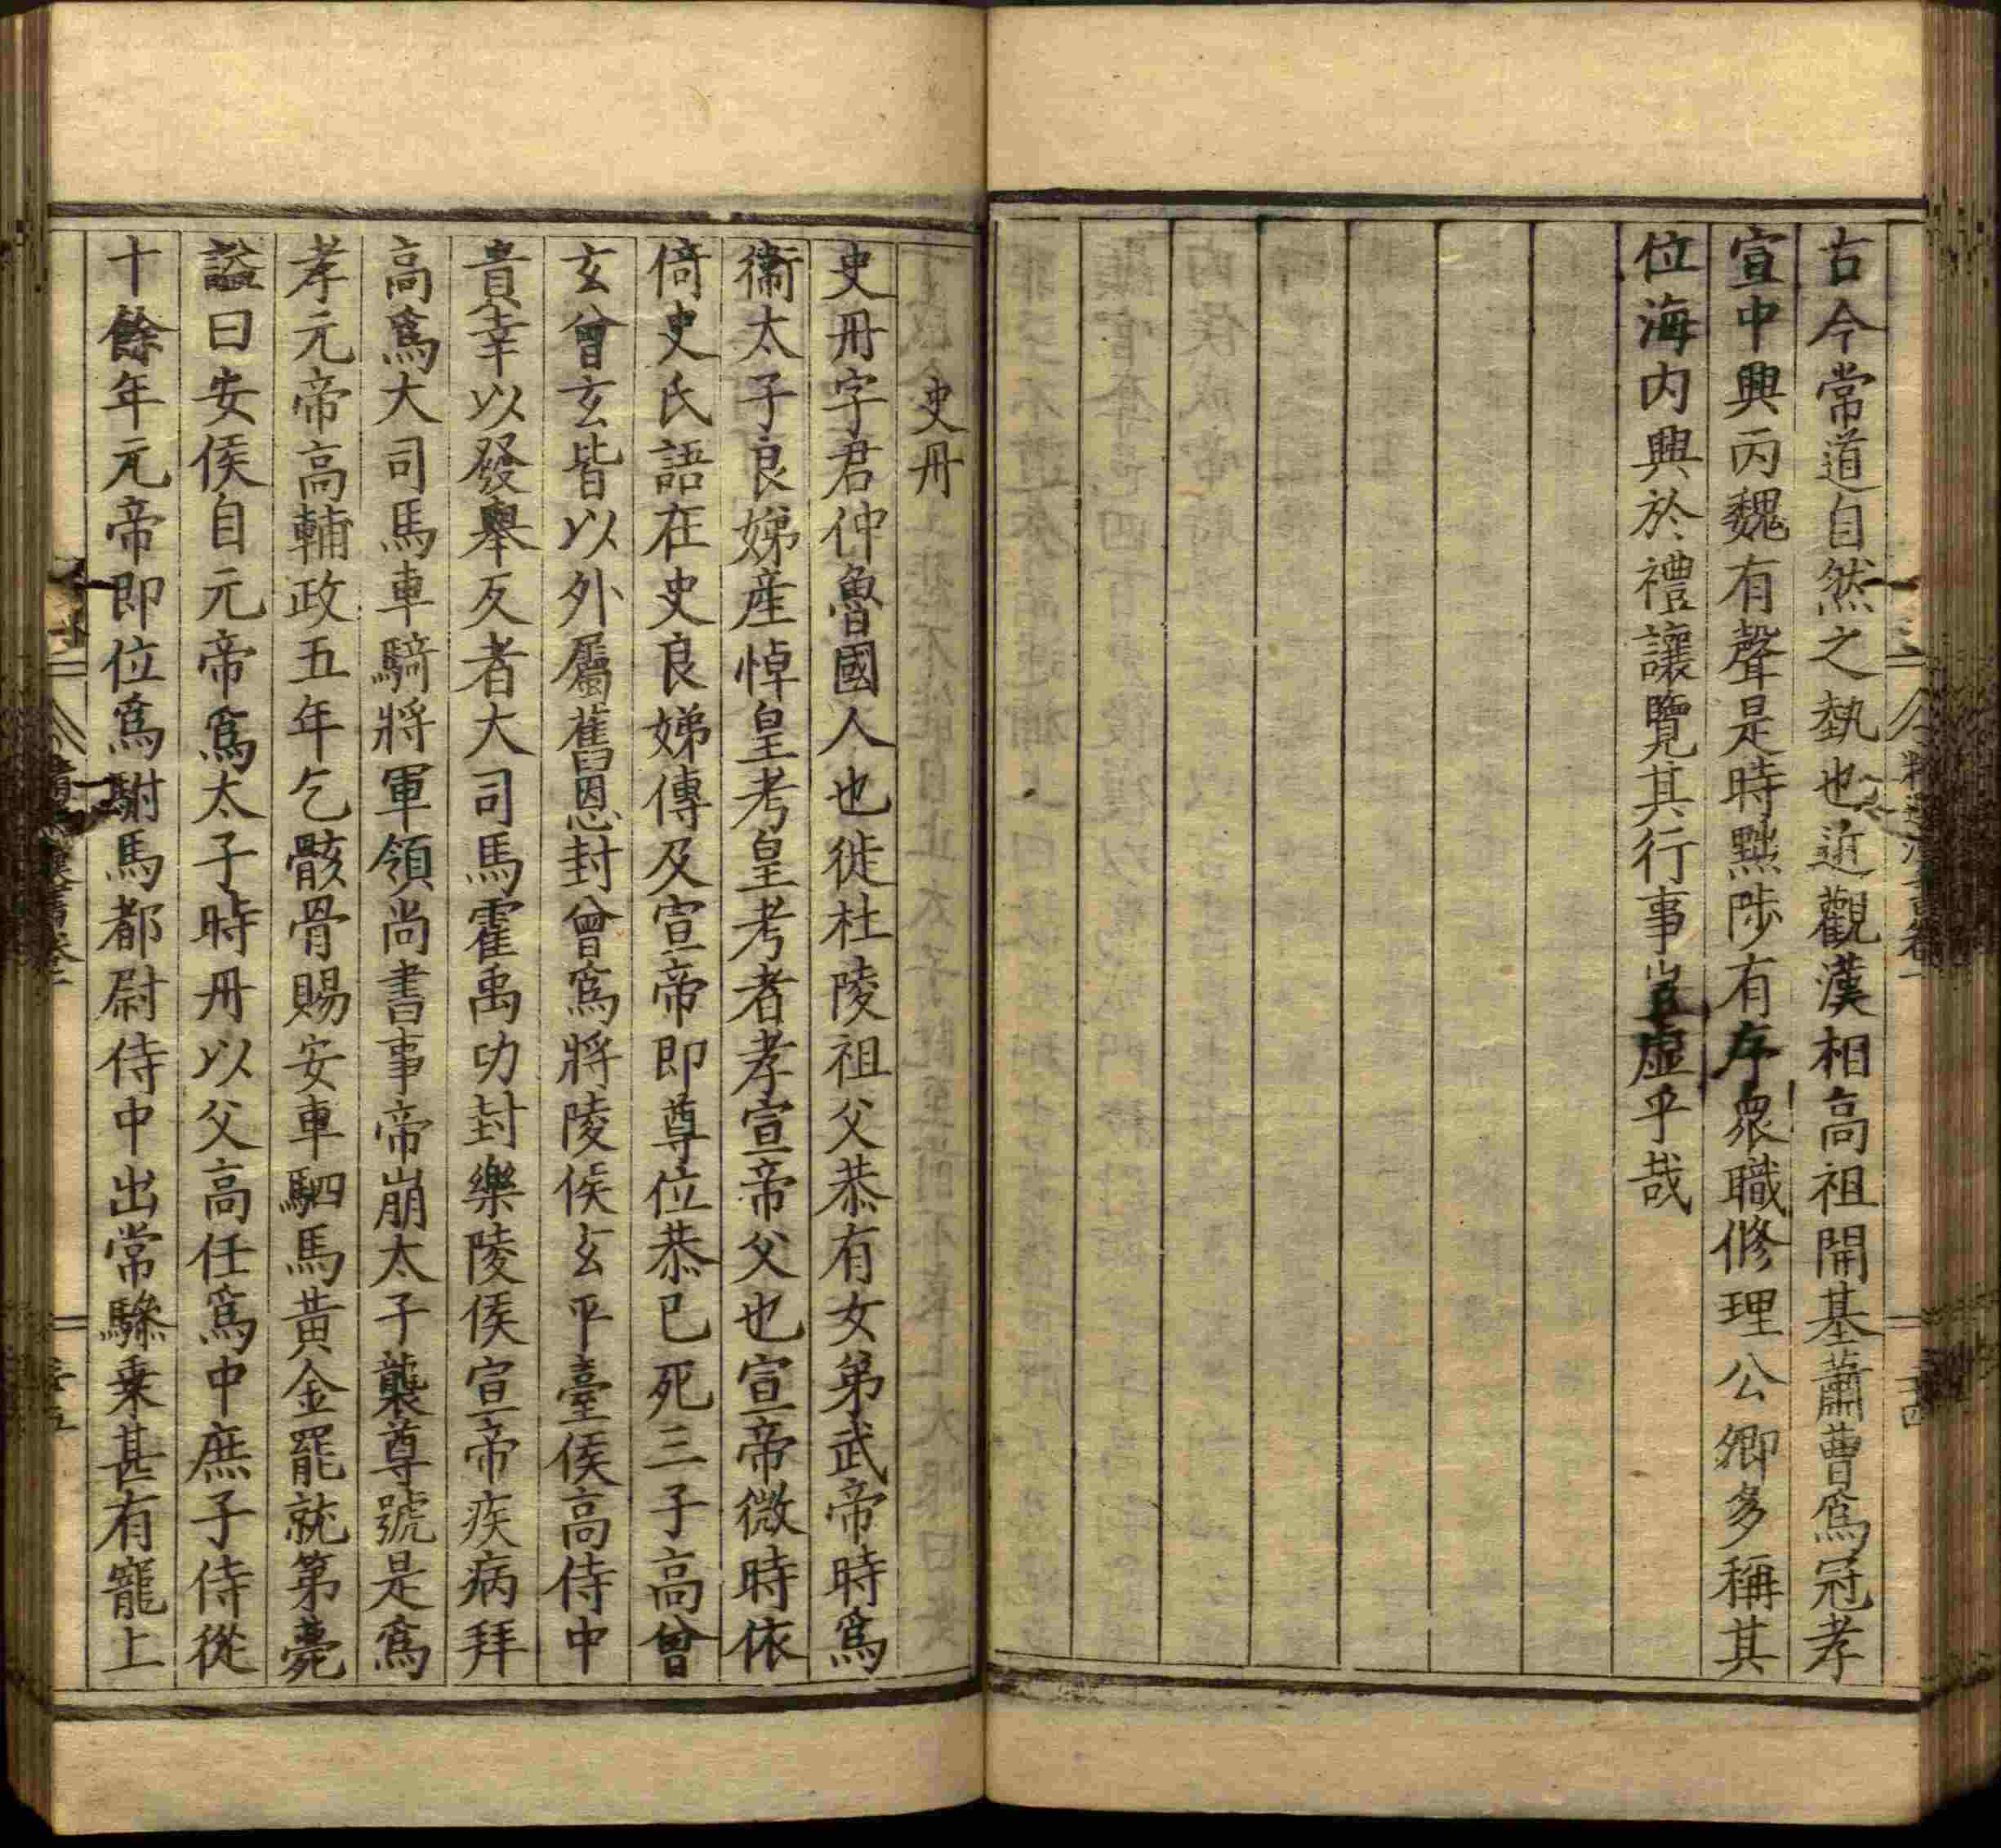 古今常道自然之埶也近觀漢相高祖開基蕭曹爲冠孝
宣中興丙魏有聲是時黜陟有序衆職修理公卿多稱其
位海内興於禮讓覽其行事豈虛乎哉
史丹
史丹字君仲魯國人也徙杜陵祖父恭有女弟武帝時爲
衞太子良娣產悼皇考皇考者孝宣帝父也宣帝微時依
倚史氏語在史良娣傳及宣帝即尊位恭已死三子高曾
玄曾玄皆以外屬舊恩封曾爲將陵侯玄平臺侯高侍中
貴幸以發舉反者大司馬霍禹功封樂陵侯宣帝疾病拜
高爲大司馬車騎將軍領尚書事帝崩太子襲尊號是爲
孝元帝高輔政五年乞骸骨賜安車駟馬黃金罷就第薨
謚曰安侯自元帝爲太子時丹以父高任爲中庶子侍從
十餘年元帝即位爲駙馬都尉侍中出常驂乗甚有寵上